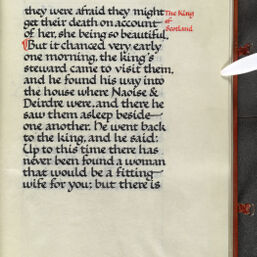 they were afraid they might
get their death on account
of her, she being so beautiful.
The King
of
Scotland
But it chanced very early
one morning, the king's
steward came to visit them,
and he found his way into
the house where Naoise &
Deirdre were, and there he
saw them asleep beside
one another. He went back
to the king, and he said:
Up to this time there has
never been found a woman
that would be a fitting
wife for you; but there is